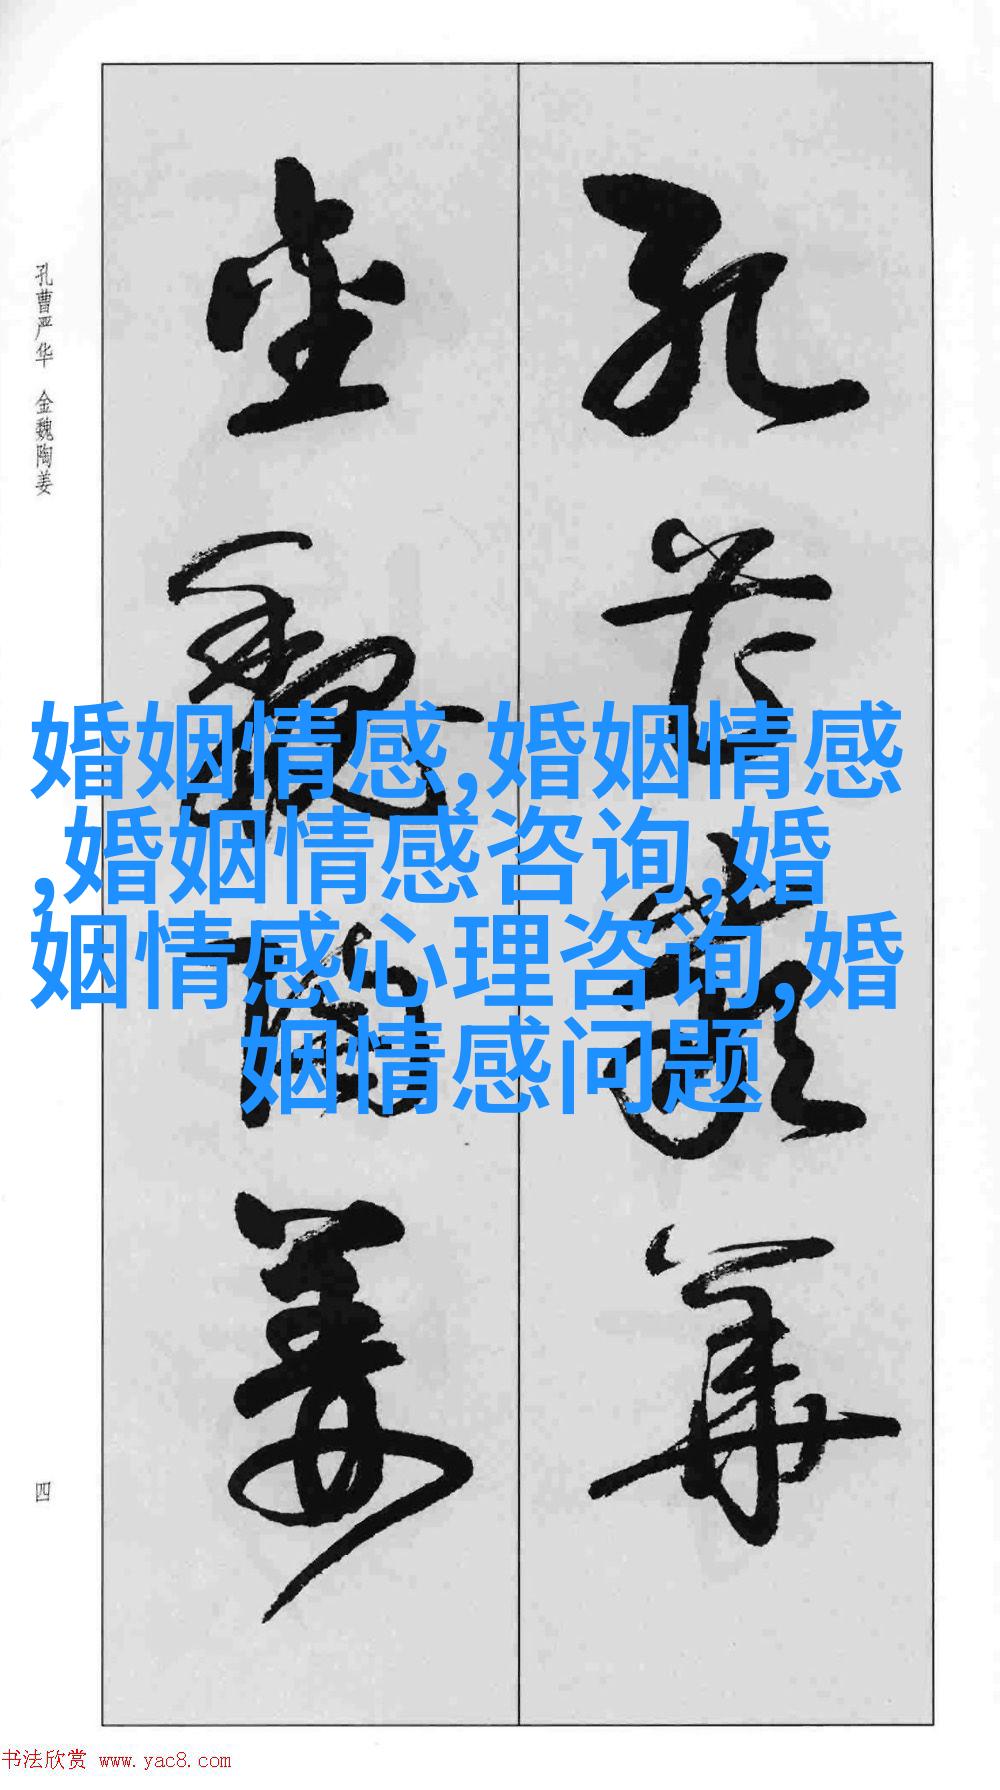 孔曹严华
金魏陶姜
孔曹严华 金魏陶姜
婚姻情感,婚姻情感
,婚姻情感咨询,婚
姻情感心理咨询,婚
姻情感问题
四
书法欣赏 www.yac8.com